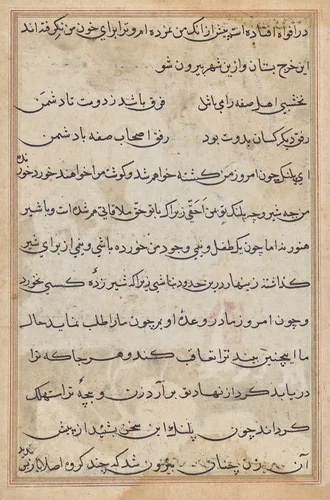 در افواه افتاده است پیش از آنک من غمزده امرو ترا برای خون من نگرفته اند
این خرج بستان و ازین شهر بیرون شو
نخشبی اهل صفه را می باش فرق باشد ز دوست تا دشمن
رفق دیگر کسان بدوت بود رفق اصحاب صفه با دشمن
ای پلنک چون امروز من کشته خواهم شد و گوشت مرا خواهند خورد خورنده
من چه شیر و چه پلنک تو من احقی زیرا که با تو حق ملاقاتی هم شده است و با شیر
هنوز نه اما چون یک طفل و نیمی وجود من خورده باشی و نیمی از برای شیر
گذاشته زینهار درین حدود نباشی زیرا که شیر زده کسی نخورد
و چون امروز مادر وعده او بر چون ما را طلب نماید حال
ما اینچنین بیند ترا تعاقب کند و هر جا که ترا
دریابد کرد از نهاد تو بر آرد زن و بچه ترا مستهلک
کرداند چون پلنک این سخن بشنید از پیش
آن زن چنان بیرون شد که چند کروه اصلا باز پس ندید